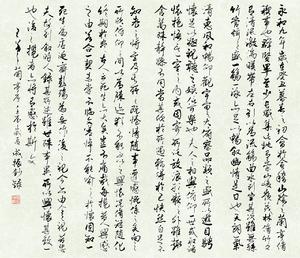 永和九年歲在癸丑暮春之初會於會稽山陰之蘭亭
修禊事也群賢畢至少長咸集此地有崇山峻嶺茂林修竹
又有清流激湍映帶左右引以為流觴曲水列坐其次雖無絲
竹管弦之盛一觴一詠亦足以暢敘幽情是日也天朗氣
清惠風和暢仰觀宇宙之大俯察品類之盛所以遊目騁
懷足以極視聽之娛信可樂也夫人之相與俯仰一世或取諸
懷抱悟言一室之內或因寄所託放浪形骸之外雖趣
舍萬殊靜躁不同當其欣於所遇暫得於己快然自足不
知老之將至及其所之既倦情隨事遷感慨係之矣向之
所欣俯仰之間已為陳跡猶不能不以之興懷況修短隨化
終期於盡古人云死生亦大矣豈不痛哉每攬昔人興感
之由若合一契未嘗不臨文嗟悼不能喻之於懷固知一
死生為虛誕齊彭殤為妄作後之視今亦由今之視昔悲
夫故列敘時人錄其所述雖世殊事異所以興懷其致一
也後之攬者亦將有感於斯文
王羲之蘭亭序